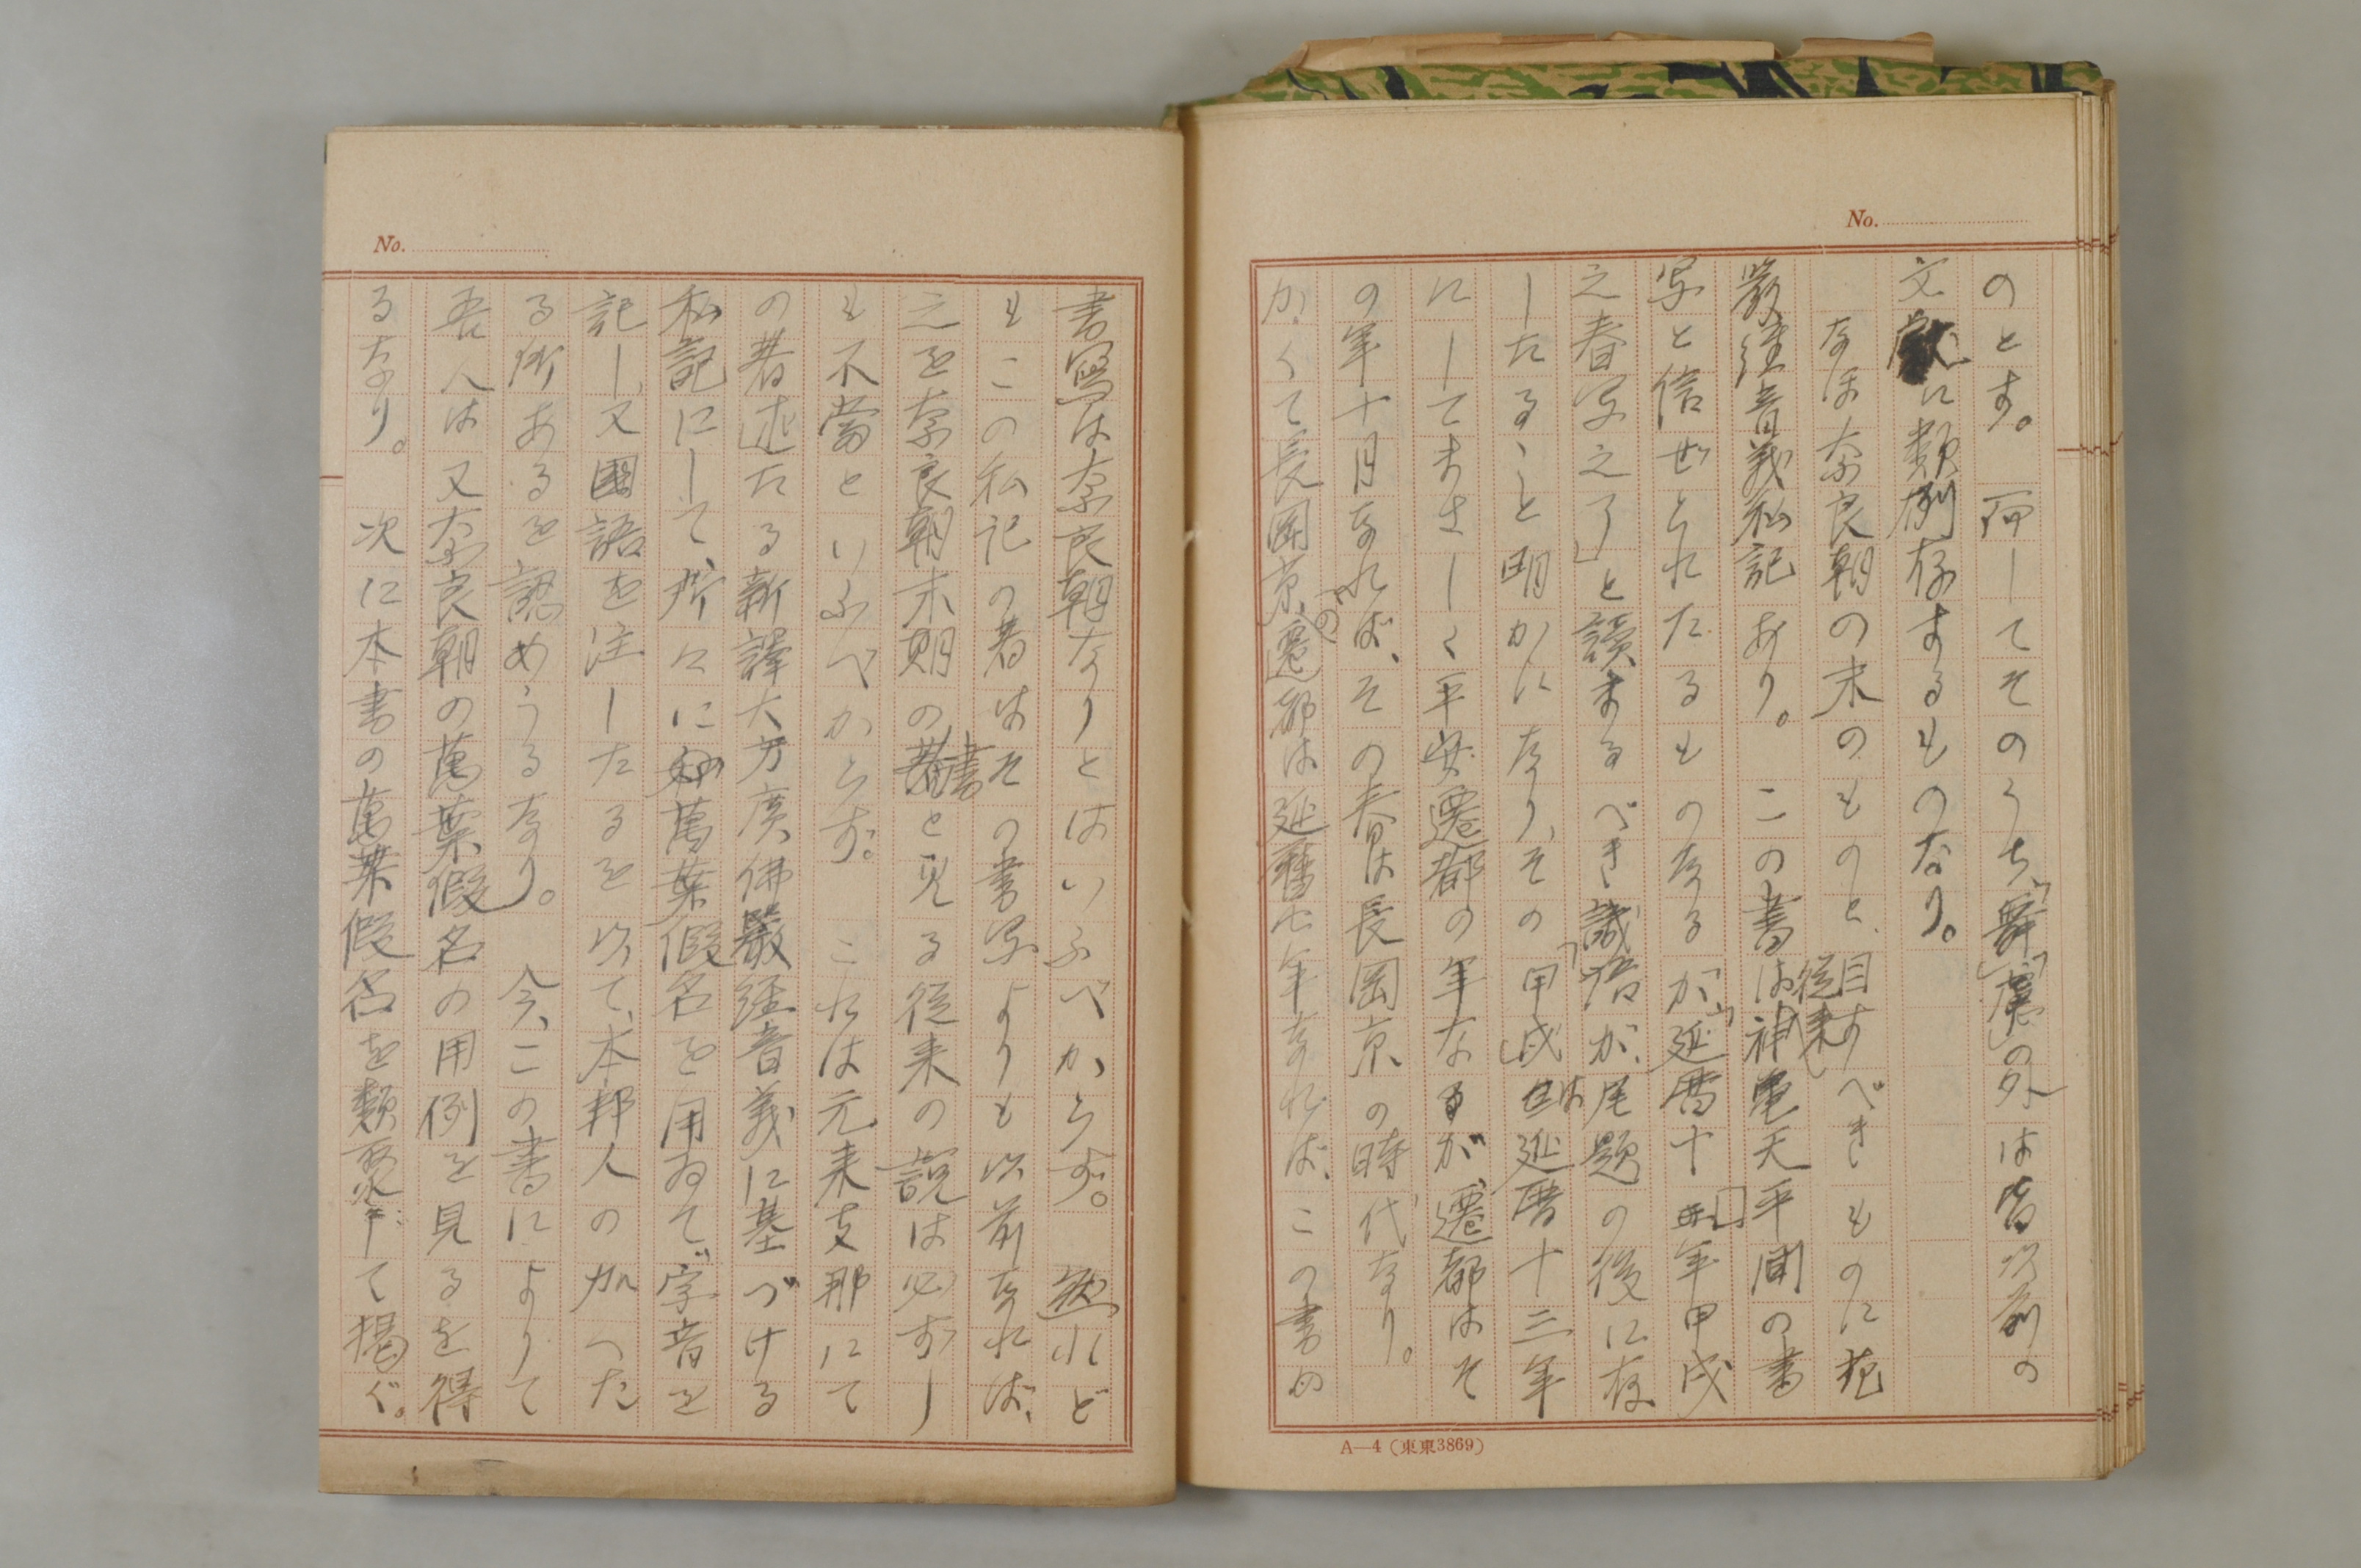 No.
のとす。而してそのうち、「舞」「慮」の外は皆以前の
文獻に類例存するものなり。
なほ奈良朝の末のものと、従来目すべきものに花
嚴經音義私記あり。この書は神亀天平間の書
写と信ぜられたるものなるが、「延暦十三年甲戌
之春写之了」と讀まるべき識語が、尾題の後に存
したること明かになり、その「甲戌」は延暦十三年
にしてまさしく平安遷都の年なるが、遷都はそ
の年十月なれば、その春は長岡京の時代なり。
かくて長岡京への遷都は延暦七年なれば、この書の
A—4(東東3869)
No.
書寫は奈良朝なりとはいふべからず。然れど
もこの私記の著はその書写よりも以前なれば、
之を奈良朝末期の著書と見る従来の説は必ずし
も不當といふべからず。これは元来支那にて
の著述たる新譯大方廣佛嚴經音義に基づける
私記にして、所々に萬葉假名を用ゐて、字音を
記し、又國語を注したるを以て、本邦人の加へた
る所あるを認めうるなり。今、この書によりて
吾人は又奈良朝の萬葉假名の用例を見るを得
るなり。次に本書の萬葉假名を類聚して掲ぐ。